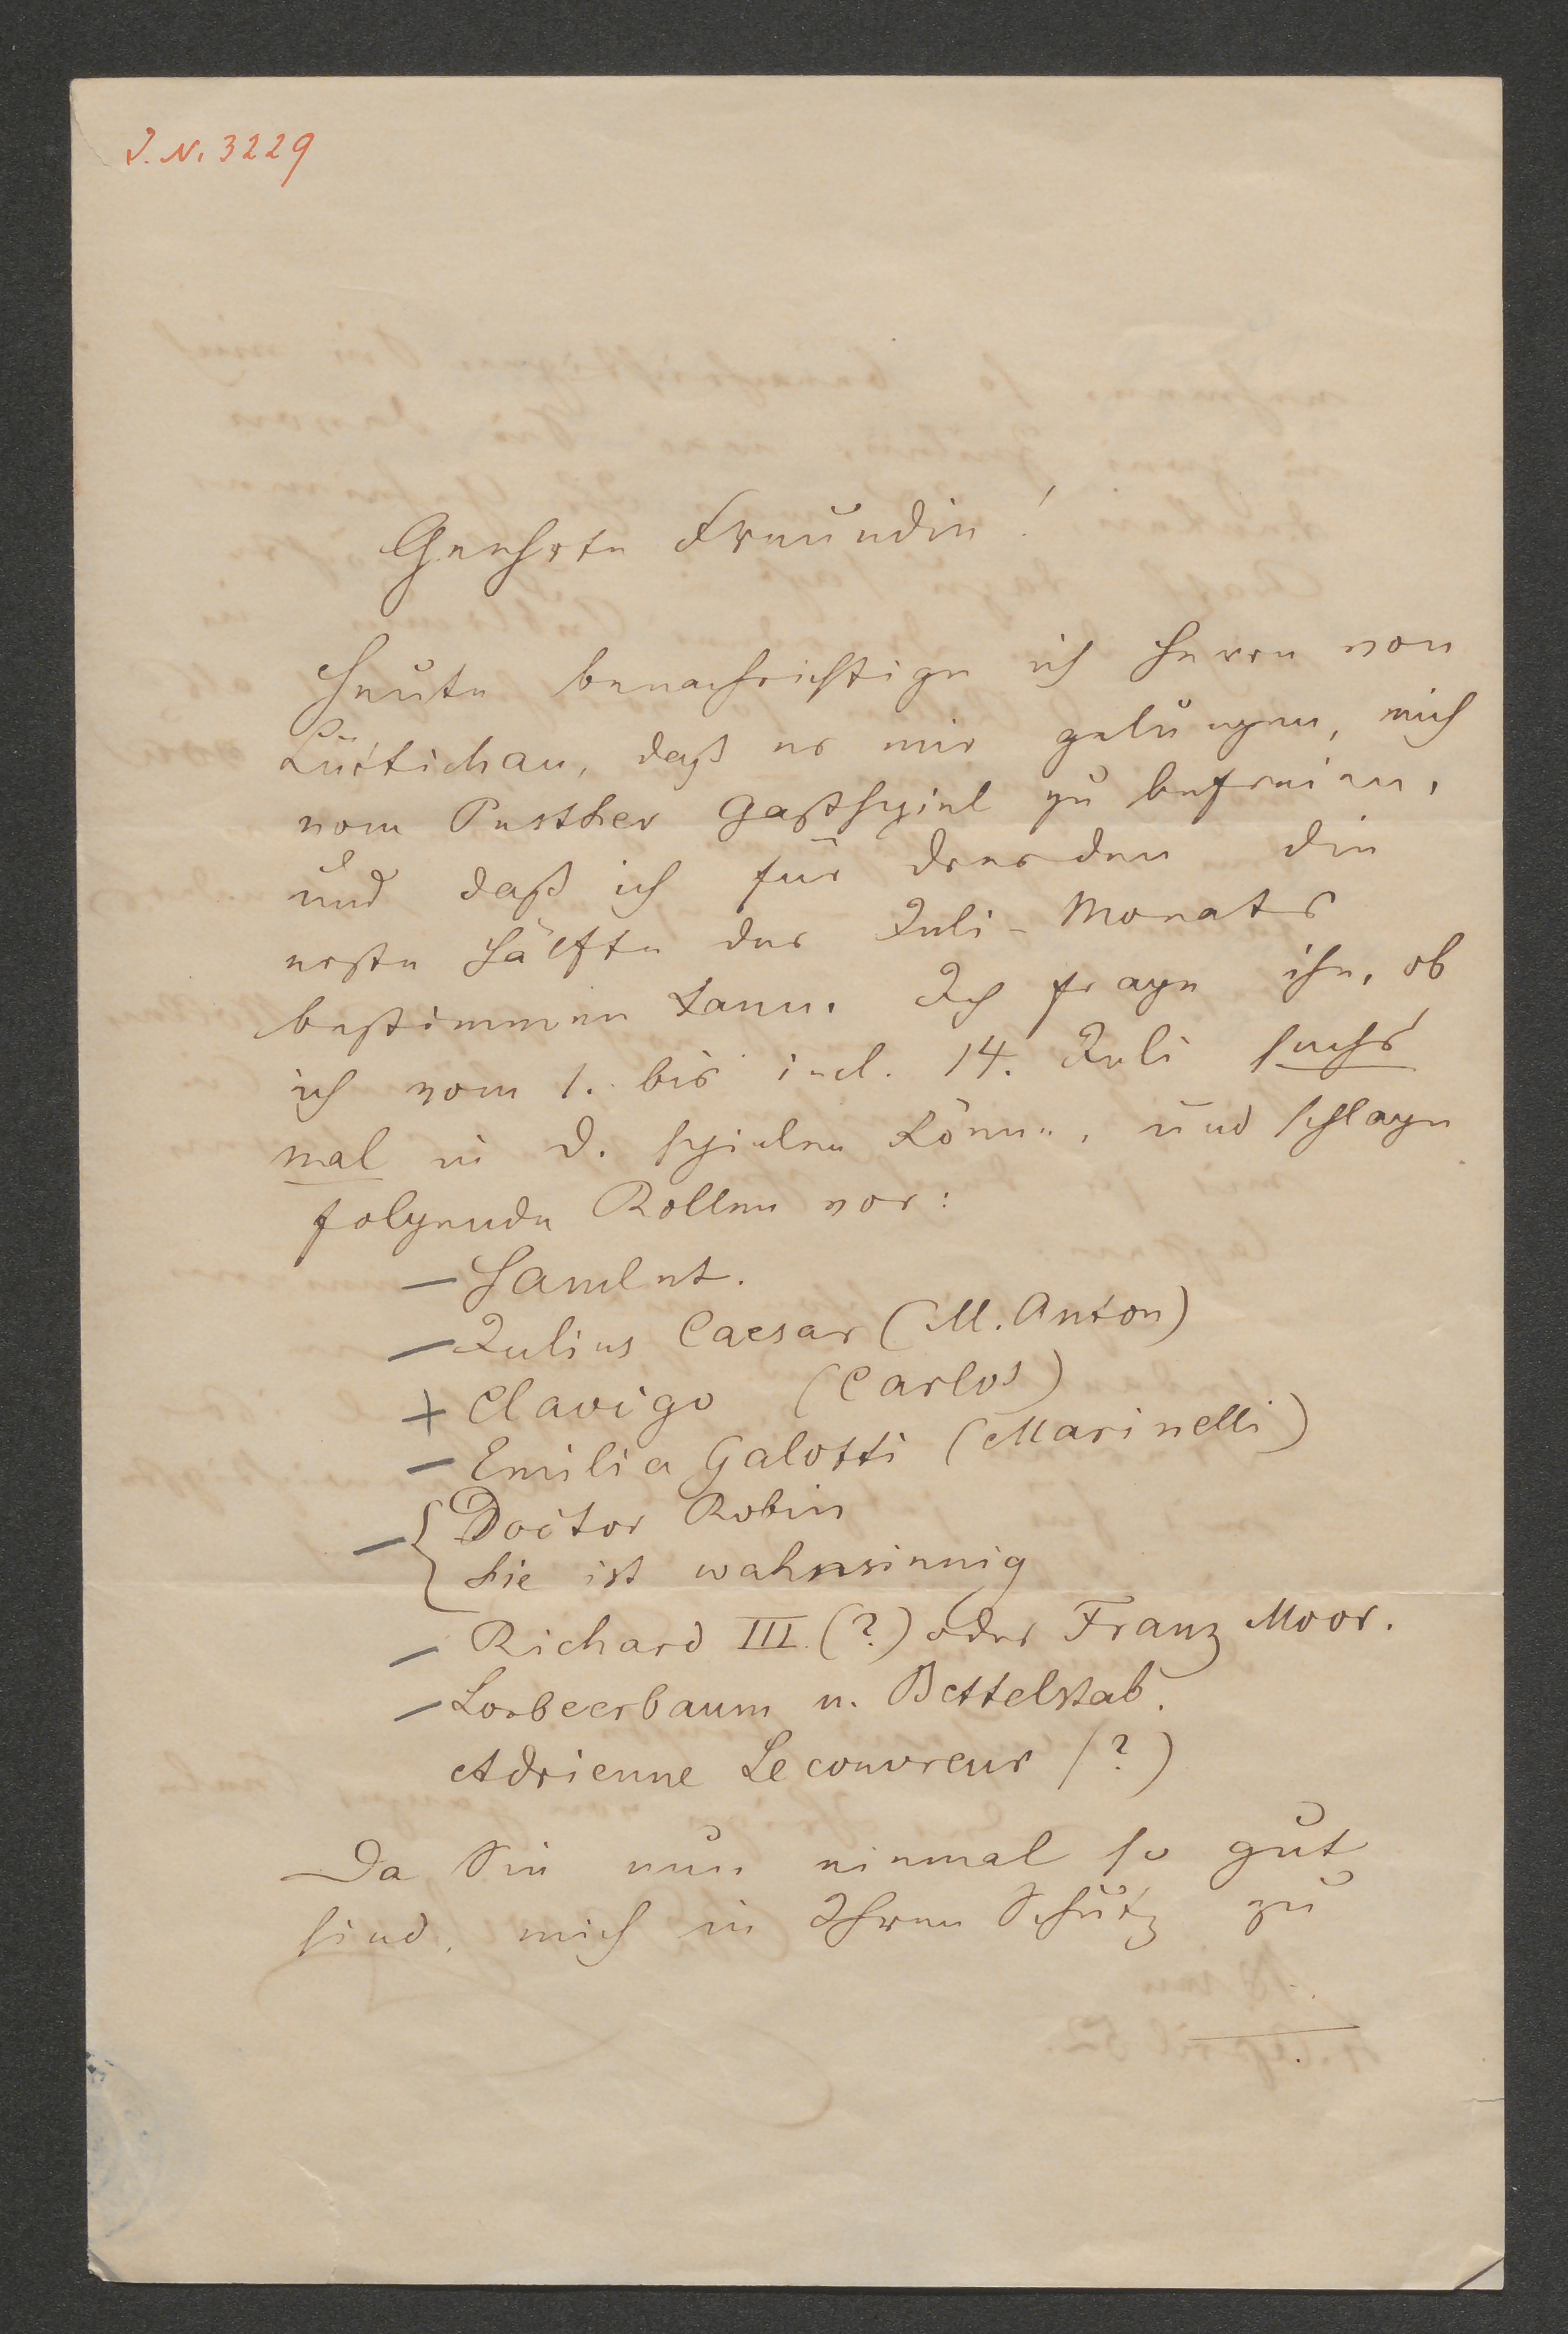 J. N. 3229
Geehrte Freundin!
Heute benachrichtige ich Herrn von
Lüttichau, daß es mir gelungen, mich
vom Pesther Gastspiel zu befreien,
und daß ich für Dresden die
erste Hälfte des Juli-Monats
bestimmen kann. Ich frage ihn, ob
ich vom 1. bis incl. 14. Juli sechs
mal in D. spielen könne, und schlage
folgende Rollen vor:
— Hamlet.
— Julius Caesar (M. Anton)
+ Clavigo (Carlos)
— Emilia Galotti (Marinelli)
— { Doctor Robin
Sie ist wahnsinnig
— Richard III. (?) oder Franz Moor.
— Lorbeerbaum u. Bettelstab.
Adrienne Lecouvreur (?)
Da Sie nun einmal so gut
sind, mich in Ihren Schutz zu